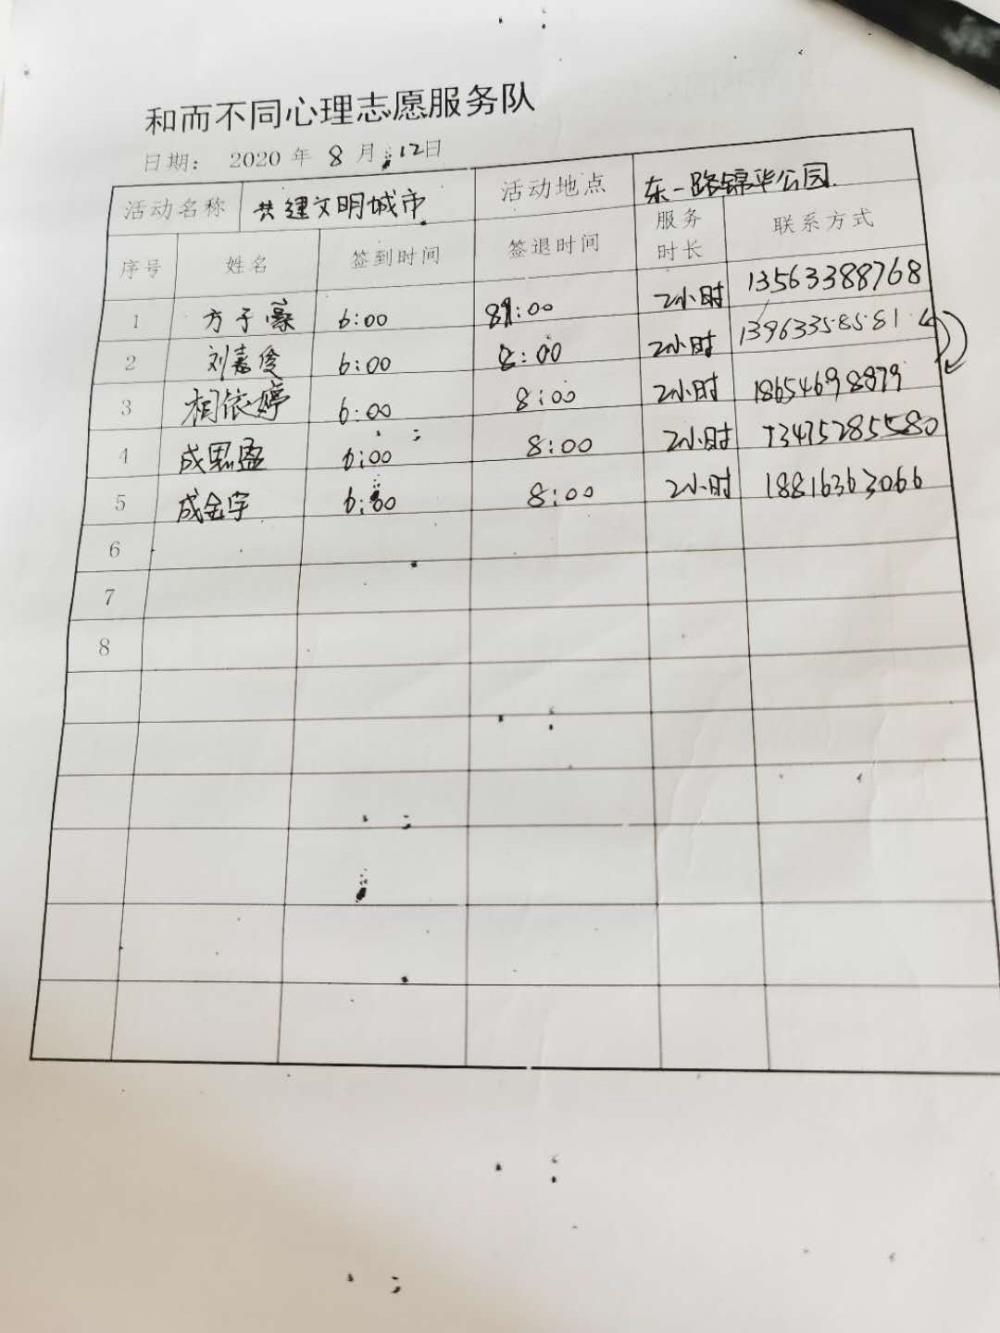 和而不同心理志愿服务队
日期： 2020 年 8 月 12日
活动名称 共建文明城市 活动地点 东一路锦华公园
序号 姓名 签到时间 签退时间 服务时长 联系方式
1 方子豪 6:00 8:00 2小时 13563388768
2 刘嘉俊 6:00 8:00 2小时 13963358581
3 相依婷 6:00 8:00 2小时 18654698879
4 成思盈 6:00 8:00 2小时 13475285580
5 成金宇 6:00 8:00 2小时 18816363066
6
7
8